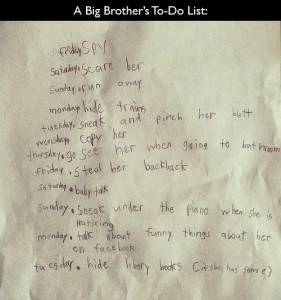 A Big Brother's To-Do List:
friday. SPY
saturday. scare her
Sunday. run away
monday. hide trains
tuesday. sneak and pinch her butt
copy her
thursday. go see her when going to bathroom
friday. steal her backback
Saturday. baby talk
Sunday. Sneak under the piano when she is
Praticing
monday. talk about funny things about her
on facebook
tuesday. hide libary books (if she has some)